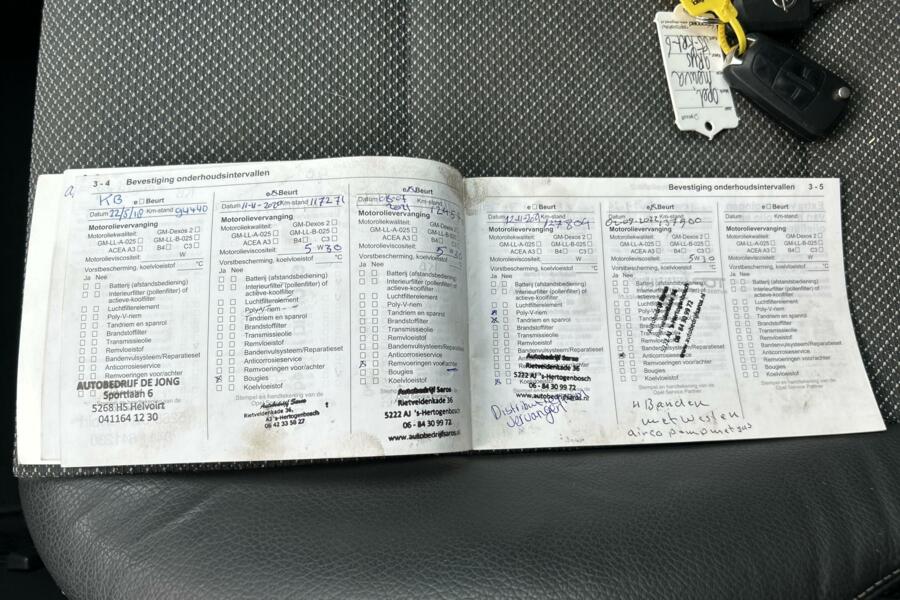 3 - 4 Bevestiging onderhoudsintervallen
KB e□Beurt
Datum 22/5/18 Km-stand 94440
Motorolievervanging
Motoroliekwaliteit: GM-Dexos 2 □
GM-LL-A-025 □ GM-LL-B-025 □
ACEA A3 □ B4 □ C3 □
Motorolieviscositeit: W
Vorstbescherming, koelvloeistof °C
Ja Nee
□ □ Batterij (afstandsbediening)
□ □ Interieurfilter (pollenfilter) of
actieve-koolfilter
□ □ Luchtfilterelement
□ □ Poly-V-riem
□ □ Tandriem en spanrol
□ □ Brandstoffilter
□ □ Transmissieolie
□ □ Remvloeistof
□ □ Bandenvulsysteem/Reparatieset
□ □ Anticorrosieservice
□ □ Remvoeringen voor/achter
AUTOBEDRIJF DE JONG
Sportlaan 6
5268 HS Helvoirt
041164 12 30
Beurt
Datum 11-11-2020 Km-stand 117271
Motorolievervanging
Motoroliekwaliteit: GM-Dexos 2 □
GM-LL-A-025 □ GM-LL-B-025 □
ACEA A3 □ B4 □ C3 □
Motorolieviscositeit: 5 W 30
Vorstbescherming, koelvloeistof °C
Ja Nee
□ □ Batterij (afstandsbediening)
□ □ Interieurfilter (pollenfilter) of
actieve-koolfilter
□ □ Luchtfilterelement
□ □ Poly-V-riem
□ □ Tandriem en spanrol
□ □ Brandstoffilter
□ □ Transmissieolie
□ □ Remvloeistof
□ □ Bandenvulsysteem/Reparatieset
□ □ Anticorrosieservice
□ □ Remvoeringen voor/achter
x □ Bougies
□ □ Koelvloeistof
Stempel en handtekening van de
Saros
Rietveldenkade 36,
AJ 's-Hertogenbosch
06 42 33 58 27
Beurt
Datum Km-stand
Motorolievervanging
Motoroliekwaliteit:
GM-LL-A-025 □ GM-LL-B-025 □
ACEA A3 □ B4 □ C3 □
Motorolieviscositeit: 5 W 30
Vorstbescherming, koelvloeistof
Ja Nee
□ □ Batterij (afstandsbediening)
□ □ Interieurfilter (pollenfilter) of
actieve-koolfilter
□ □ Luchtfilterelement
□ □ Poly-V-riem
□ □ Tandriem en spanrol
□ □ Brandstoffilter
□ □ Transmissieolie
□ □ Remvloeistof
□ □ Bandenvulsysteem/Reparatieset
□ □ Anticorrosieservice
x □ Remvoeringen voor/achter
□ □ Bougies
□ □ Koelvloeistof
Autobedrijf Saros
Rietveldenkade 36
5222 AJ 's-Hertogenbosch
06 - 84 30 99 72
www.autobedrijfsaros.nl
Bevestiging onderhoudsintervallen 3 - 5
e □ Beurt
Km-stand
Motorolievervanging
Motoroliekwaliteit: GM-Dexos 2 □
GM-LL-A-025 □ GM-LL-B-025 □
ACEA A3 □ B4 □ C3 □
Motorolieviscositeit: W
Vorstbescherming, koelvloeistof °C
Ja Nee
□ □ Batterij (afstandsbediening)
□ □ Interieurfilter (pollenfilter) of
actieve-koolfilter
□ □ Luchtfilterelement
x □ Poly-V-riem
x □ Tandriem en spanrol
□ □ Brandstoffilter
□ □ Transmissieolie
□ □ Remvloeistof
□ □ Bandenvulsysteem/Reparatieset
Autobedrijf Saros
Rietveldenkade 36
5222 AJ 's-Hertogenbosch
06 - 84 30 99 72
vervangen
Beurt
02-09-2022 137900
Motorolievervanging
Motoroliekwaliteit: GM-Dexos 2 □
GM-LL-A-025 □ GM-LL-B-025 □
ACEA A3 □ B4 □ C3 □
Motorolieviscositeit: 5 W 30
Vorstbescherming, koelvloeistof °C
Ja Nee
□ □ Batterij (afstandsbediening)
□ □ Luchtfilterelement
□ □ Poly-V-riem
□ □ Tandriem en spanrol
□ □ Brandstoffilter
□ □ Transmissieolie
□ □ Remvloeistof
□ □ Bandenvulsysteem/Reparatieset
Anticorrosieservice
□ □ Remvoeringen voor/achter
□ □ Bougies
□ □ Koelvloeistof
Stempel en handtekening van de
Opel Service Partner
06 - 84 30 99 72
4 Banden
airco
e □ Beurt
Datum Km-stand
Motorolievervanging
Motoroliekwaliteit: GM-Dexos 2 □
GM-LL-A-025 □ GM-LL-B-025 □
ACEA A3 □ B4 □ C3 □
Motorolieviscositeit: W
Vorstbescherming, koelvloeistof °C
Ja Nee
□ □ Batterij (afstandsbediening)
□ □ Interieurfilter (pollenfilter) of
actieve-koolfilter
□ □ Luchtfilterelement
□ □ Poly-V-riem
□ □ Tandriem en spanrol
□ □ Brandstoffilter
□ □ Transmissieolie
□ □ Remvloeistof
□ □ Bandenvulsysteem/Reparatieset
□ □ Anticorrosieservice
□ □ Remvoeringen voor/achter
□ □ Bougies
□ □ Koelvloeistof
Stempel en handtekening van de
Opel Service Partner
Opel
meriva
grijs